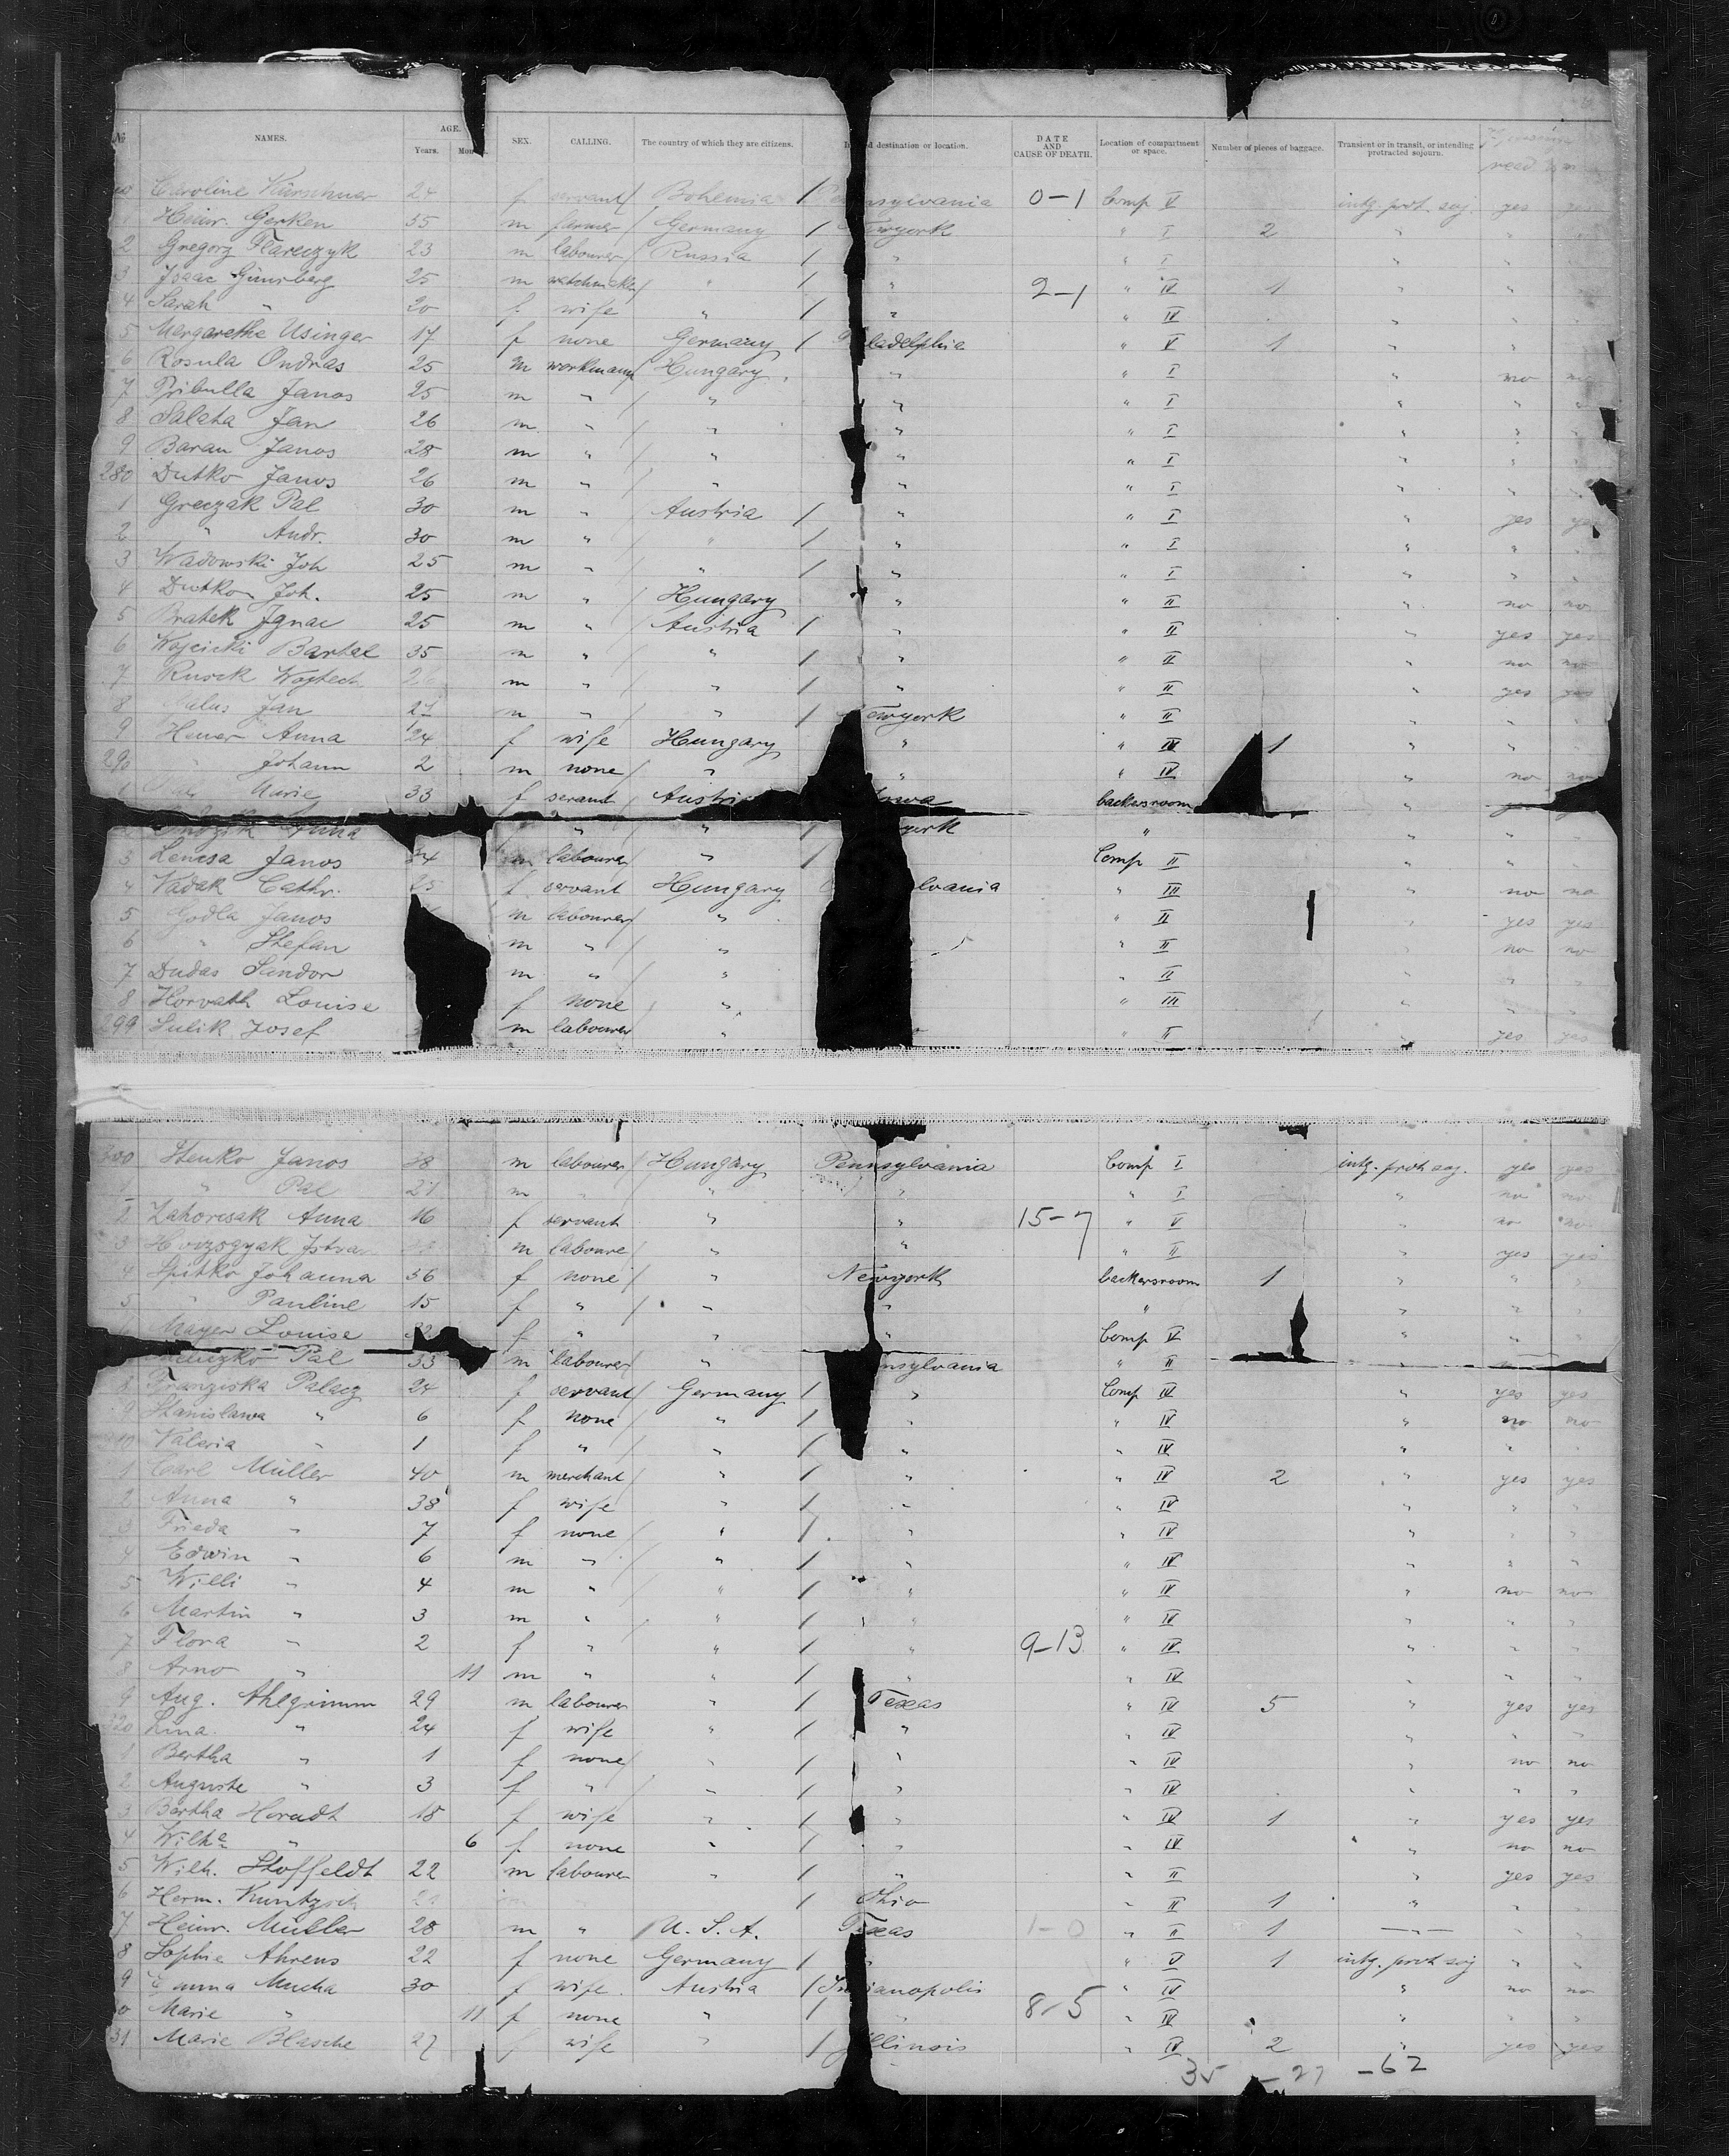 No. NAMES. AGE. Years. SEX. CALLING. The country of which they are citizens. destination or location. DATE AND CAUSE OF DEATH. Location of compartment or space. Number of pieces of baggage. Transient or in transit, or intending protracted sojourn. read
Caroline Kürschner 24 f servant Bohemia Pennsylvania 0-1 Comp V intg. prot. soj. yes
Heinr. Gerken 35 m farmer Germany Newyork " I 2 " "
2 Gregorz 23 m labourer Russia " " I " "
3 Isaac Günsberg 25 m watchmaker " " 2-1 " IV 1 " "
4 Sarah " 20 f wife " " " IV " "
5 Margarethe Usinger 17 f none Germany Philadelphia " V 1 " "
6 Rosula Ondras 25 m workmann Hungary " " I " no no
7 Pribulla Janos 25 m " " " " I " " "
8 Salata Jan 26 m " " " " I " " "
9 Baran Janos 28 m " " " " I " " "
280 Dutko Janos 26 m " " " " I " " "
1 Greczak Pal 30 m " Austria " " I " yes yes
2 " Andr. 30 m " " " " I " " "
3 Wadowski Joh 25 m " " " " I " " "
4 Dutkon Joh. 25 m " Hungary " " II " no no
5 Bratek Ignac 25 m " Austria " " II " yes yes
6 Wojcicki Bartel 35 m " " " " II " no no
7 Rusek Wojtech 26 m " " " " II " yes yes
8 Jan m " " Newyork " II " " "
9 Heuer Anna 24 f wife Hungary " " IV 1 " " "
290 " Johann 2 m none " " " IV " no no
1 Marie 33 f serand Austria Iowa backersroom "
Anna " " york " " "
3 Lencsa Janos 34 m labourer " Comp II " "
4 Vadak Cathr. 25 f servant Hungary lvania " III " no no
5 Godla Janos m labourer " " II " yes yes
6 " Stefan m " " " II " no no
7 Dudas Sandor m " " " II " " "
8 Horvath Louise f none " " III " " "
299 Sulik Josef m labourer " " II " yes yes
300 Stenko Janos 38 m labourer Hungary Pennsylvania Comp I intg. prot soj. yes yes
1 " Pal 21 m " " " " I " no no
2 Zahorcsak Anna 16 f servant " " 15-7 " V " no no
3 m laboure " " " II " yes yes
4 Spitko Johanna 36 f none " Newyork backersroom 1 " "
5 " Pauline 15 f " " " " " " "
Mayer Louise 32 f " " " Comp V " " "
Pal 33 m labourer " nsylvania " II "
8 Franziska Palacz 24 f servant Germany " Comp IV " yes yes
9 Stanislawa " 6 f none " " " IV " no no
310 Valeria " 1 f " " " " IV " " "
1 Carl Müller 40 m merchant " " " IV 2 " yes yes
2 Anna " 38 f wife " " " IV " " "
3 Frieda " 7 f none " " " IV " " "
4 Edwin " 6 m " " " " IV " " "
5 Willi " 4 m " " " " IV " no no
6 Martin " 3 m " " " " IV " " "
7 Flora " 2 f " " " 9-13 " IV " " "
8 Arno " 11 m " " " " IV " " "
9 Aug. Ahlgrimm 29 m labourer " Texas " IV 5 " yes yes
320 Lina " 24 f wife " " " IV " " "
1 Bertha " 1 f none " " " IV " no no
2 Auguste " 3 f " " " " IV " " "
3 Bertha Heradt 18 f wife " " " IV 1 " yes yes
4 Wilhe " 6 f none " " " IV " no no
5 Wilh. Stoffeldt 22 m labourer " " " II " yes yes
6 Herm. Kuntzsch Ohio " II 1 " " "
7 Heinr. Müller 28 m " U. S. A. Texas 1-0 " II 1 — " "
8 Sophie Ahrens 22 f none Germany " " V 1 intg. prot soj " "
9 Emma Mucha 30 f wife Austria Indianapolis " IV " no no
0 Marie " 11 f none " " 8-5 " IV " " "
31 Marie Blasche 27 f wife " Illinois " IV 2 " yes yes
35 – 27 – 62